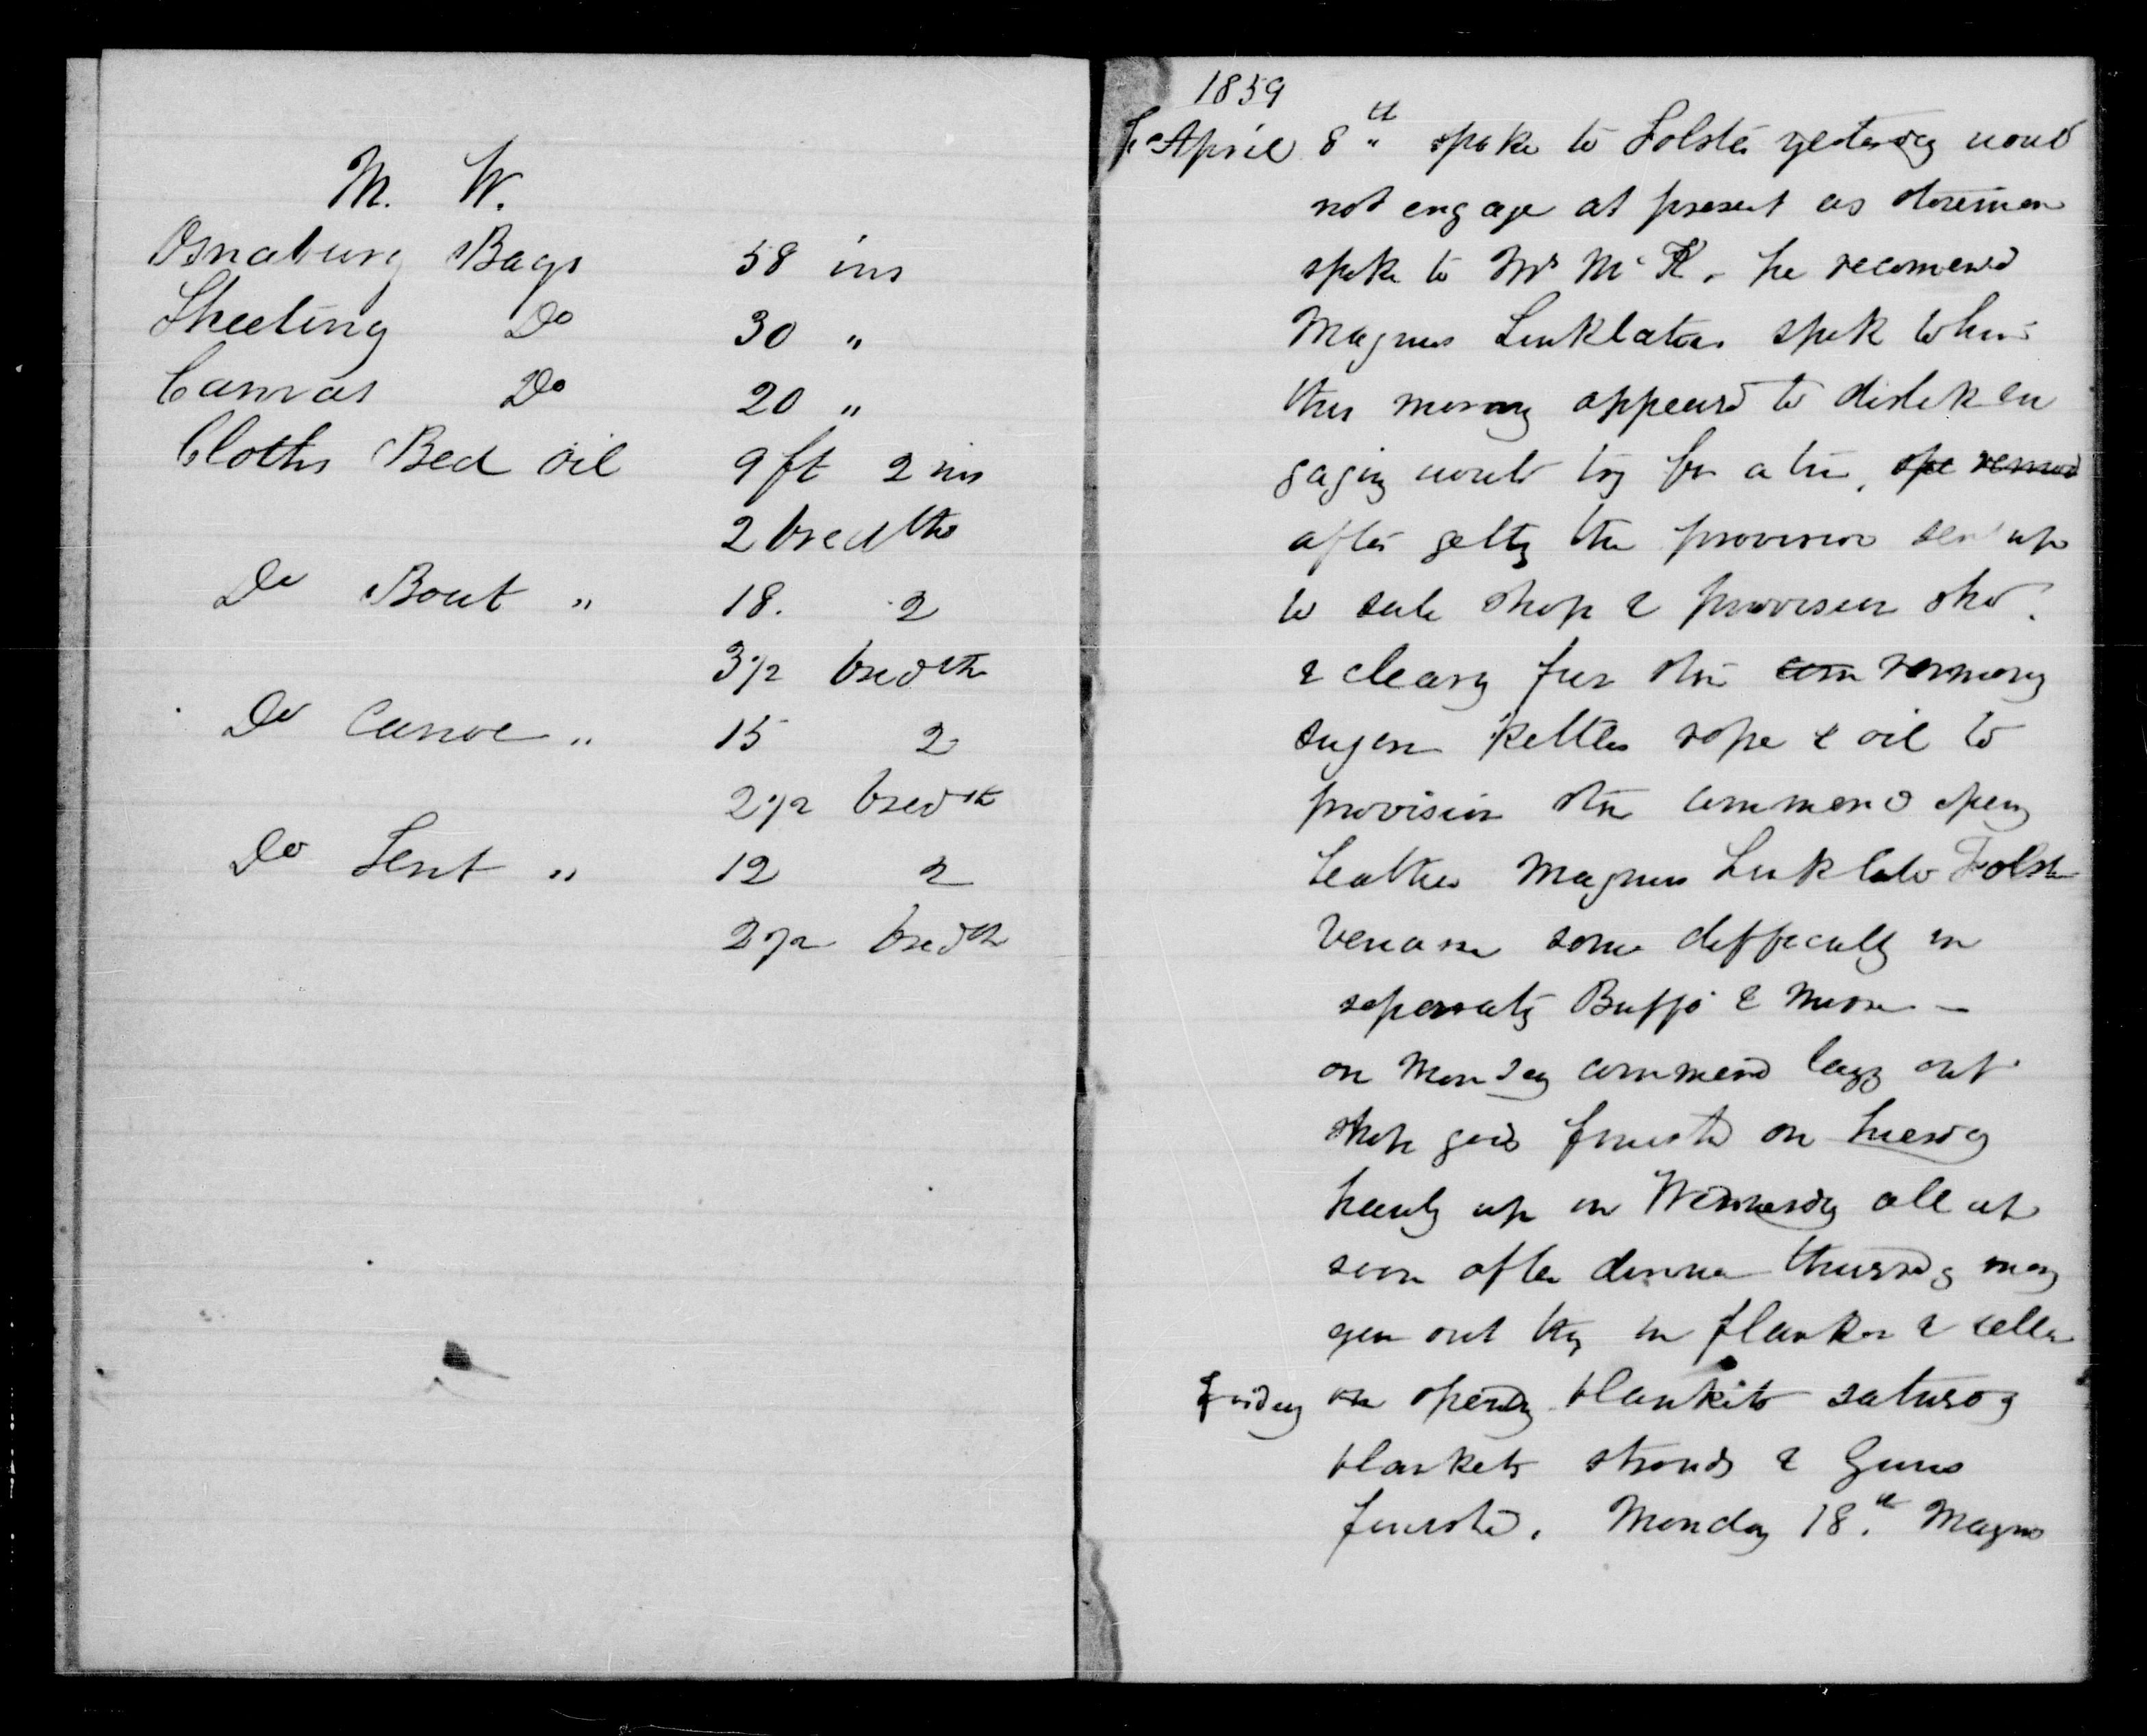 M. W.
Osnaburg Bags 58 ins
Sheeting Do 30 "
Canvas Do 20 "
Cloths Bed Oil 9 ft 2 ins
2 bredths
Do Boat " 18. 2
3 1/2 bredth
Do Canoe " 15 2
2 1/2 bredth
Do Tent " 12 2
2 1/2 bredth
1859
April 8th spoke to Folster yesterday would
not engage at present as storeman
spoke to Mr McK. he recomend
Magnus Linklater spok to him
this morng appeard to dislik en
gaging would try for a
after gettg the provision up
to sale shop & provision
& clearg fur
sugar kettles rope & oil to
provision commencd openg
Leather Magnus Linklater Folster
some difficulty in
separatg Buffo & Moose -
on Monday commencd layg out
shop on Tuesday
up on Wednesday all up
soon after dinner thursday
out in flanker & cellar
Friday openg blankits saturdy
blankets strouds & Guns
Monday 18th Magnus